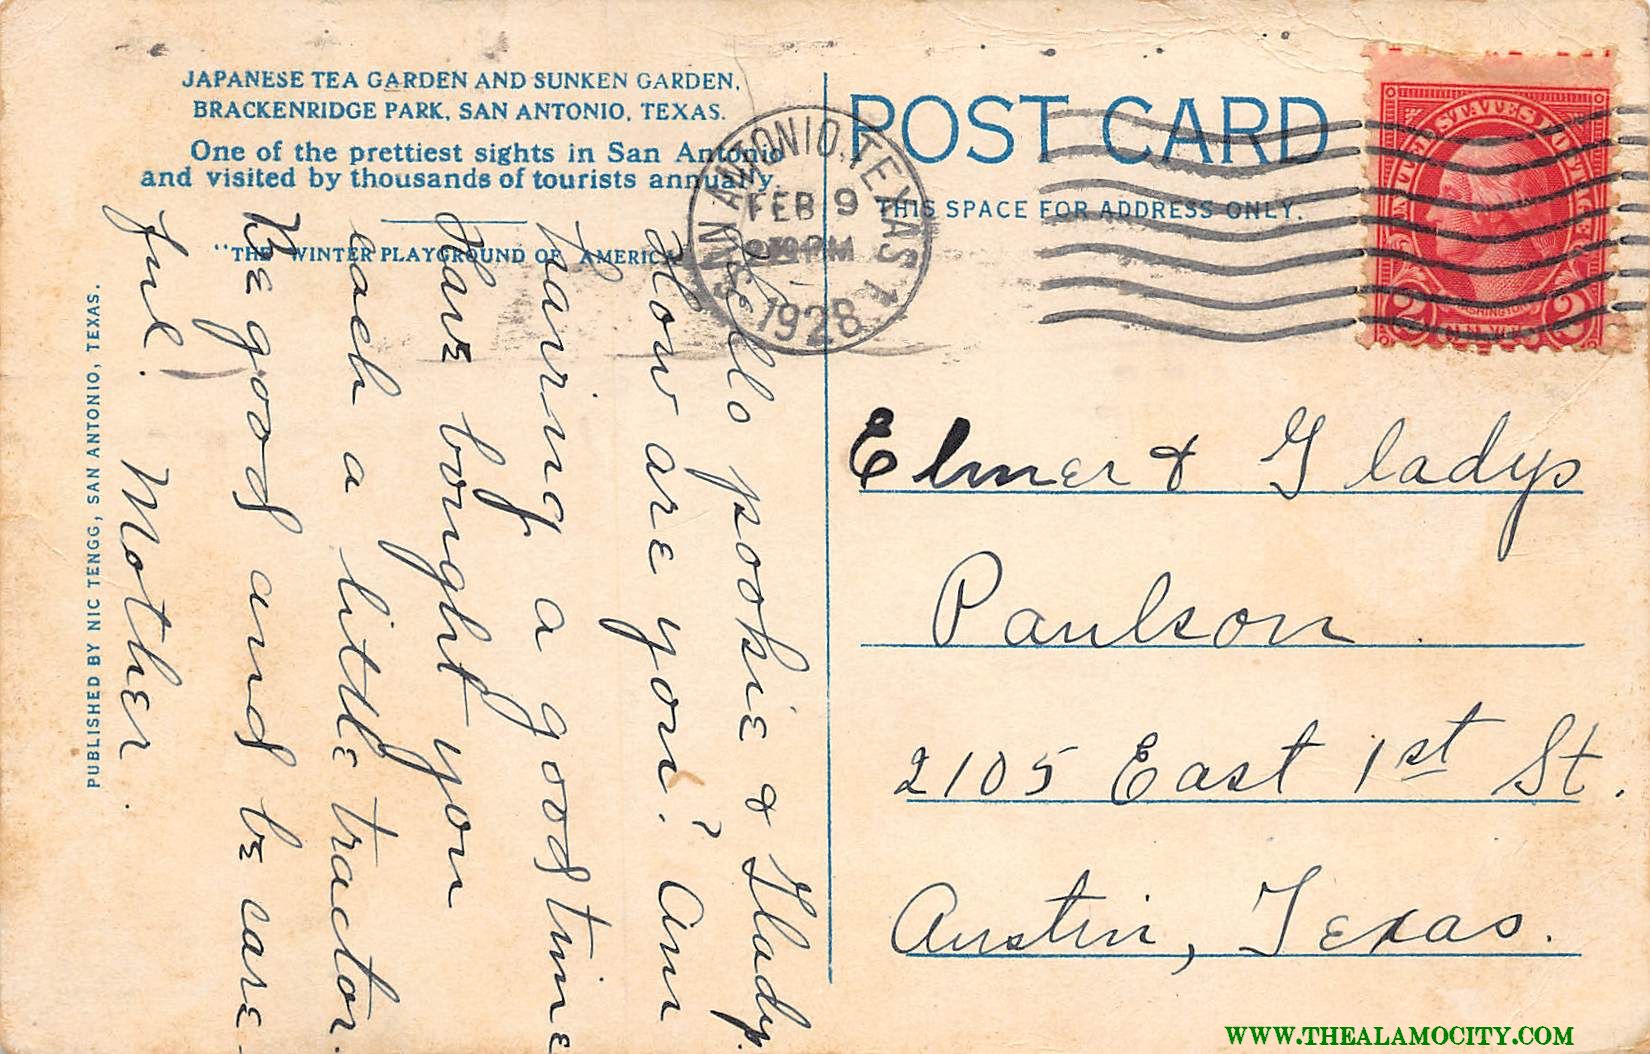 JAPANESE TEA GARDEN AND SUNKEN GARDEN,
BRACKENRIDGE PARK, SAN ANTONIO, TEXAS.
One of the prettiest sights in San Antonio
and visited by thousands of tourists annually.
"THE WINTER PLAYGROUND OF AMERICA"
PUBLISHED BY NIC TENGG, SAN ANTONIO, TEXAS.
Hello pookie & Gladys.
How are you? Am
having a good time
Have bought you
each a little tractor.
Be good and be care-
ful. Mother.
SAN ANTONIO, TEXAS
FEB 9
PM
1928
POST CARD
THIS SPACE FOR ADDRESS ONLY.
UNITED STATES POSTAGE
WASHINGTON
2 CENTS 2
Elmer & Gladys
Paulson
2105 East 1st St.
Austin, Texas.
WWW.THEALAMOCITY.COM